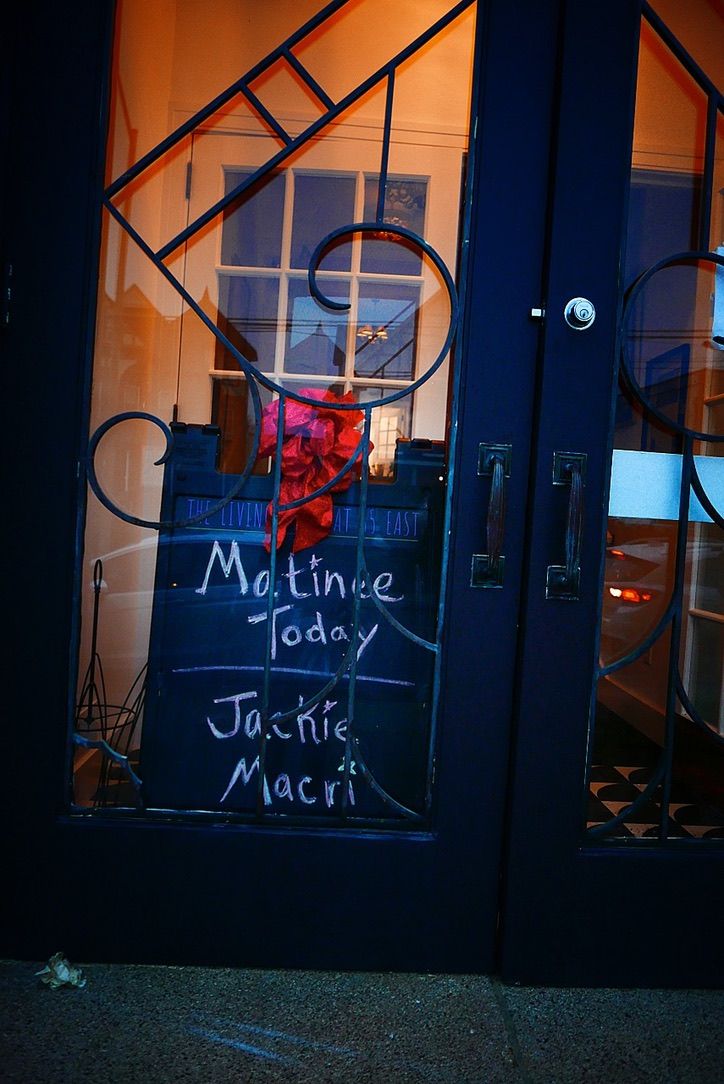 THE LIVIN AT S EAST
Matinee
Today
Jackie
Macri